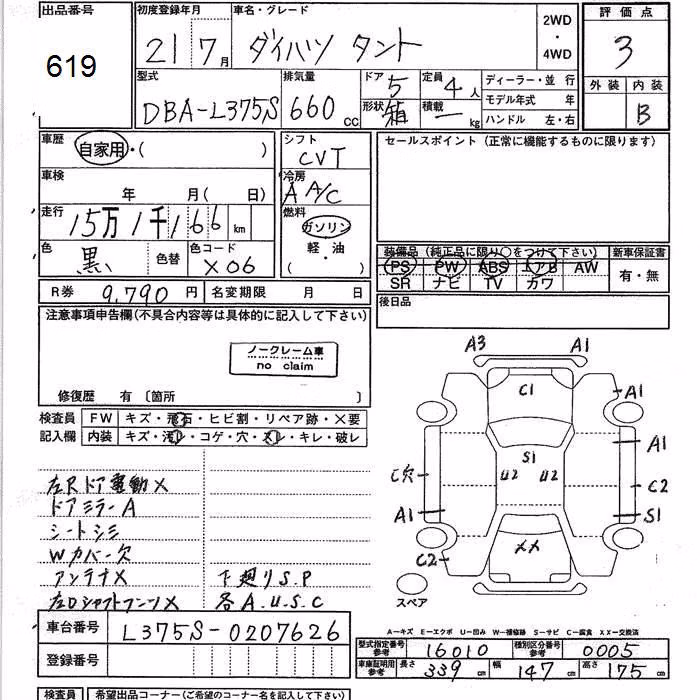 出品番号
619
初度登録年月
21 7月
車名・グレード
ダイハツ タント
2WD
・
4WD
評価点
3
外装 内装
B
型式
DBA-L375S
排気量
660 cc
ドア 5
形状 箱
定員 4人
積載 ー kg
ディーラー・並行
モデル年式 年
ハンドル 左・右
車歴
自家用・( )
シフト
CVT
冷房
A A/C
燃料
ガソリン
軽・油
( )
車検
年 月(日)
走行
15万1千166km
色
黒
色替
色コード
X06
R券 9,790円
名変期限 月 日
セールスポイント(正常に機能するものに限ります)
装備品(純正品に限り○をつけて下さい)
PS PW ABS エアB AW
SR ナビ TV カワ
新車保証書
有・無
後日品
注意事項申告欄(不具合内容等は具体的に記入して下さい)
ノークレーム車
no claim
修復歴 有〔箇所 〕
検査員
記入欄
FW キズ・飛石・ヒビ割・リペア跡・×要
内装 キズ・汚レ・コゲ・穴・スレ・キレ・破レ
左Rドア電動×
ドアミラーA
シートシミ
Wカバー欠
アンテナ×
左Dシャフトブーツ×
下廻りS.P
各A.U.S.C
A3 A1
C1
A1
A1
S1
U2 U2
C穴
C2
A1
S1
XX
C2
スペア
A-キズ E-エクボ U-凹み W-補修跡 S-サビ C-腐食 XX-交換済
車台番号 L375S-0207626
登録番号
型式指定番号
参考
16010
種別区分番号
参考
0005
車庫証明用
参考
長さ 339cm
幅 147cm
高さ 175cm
検査員
希望出品コーナー(ご希望のコーナー名を記入して下さい)